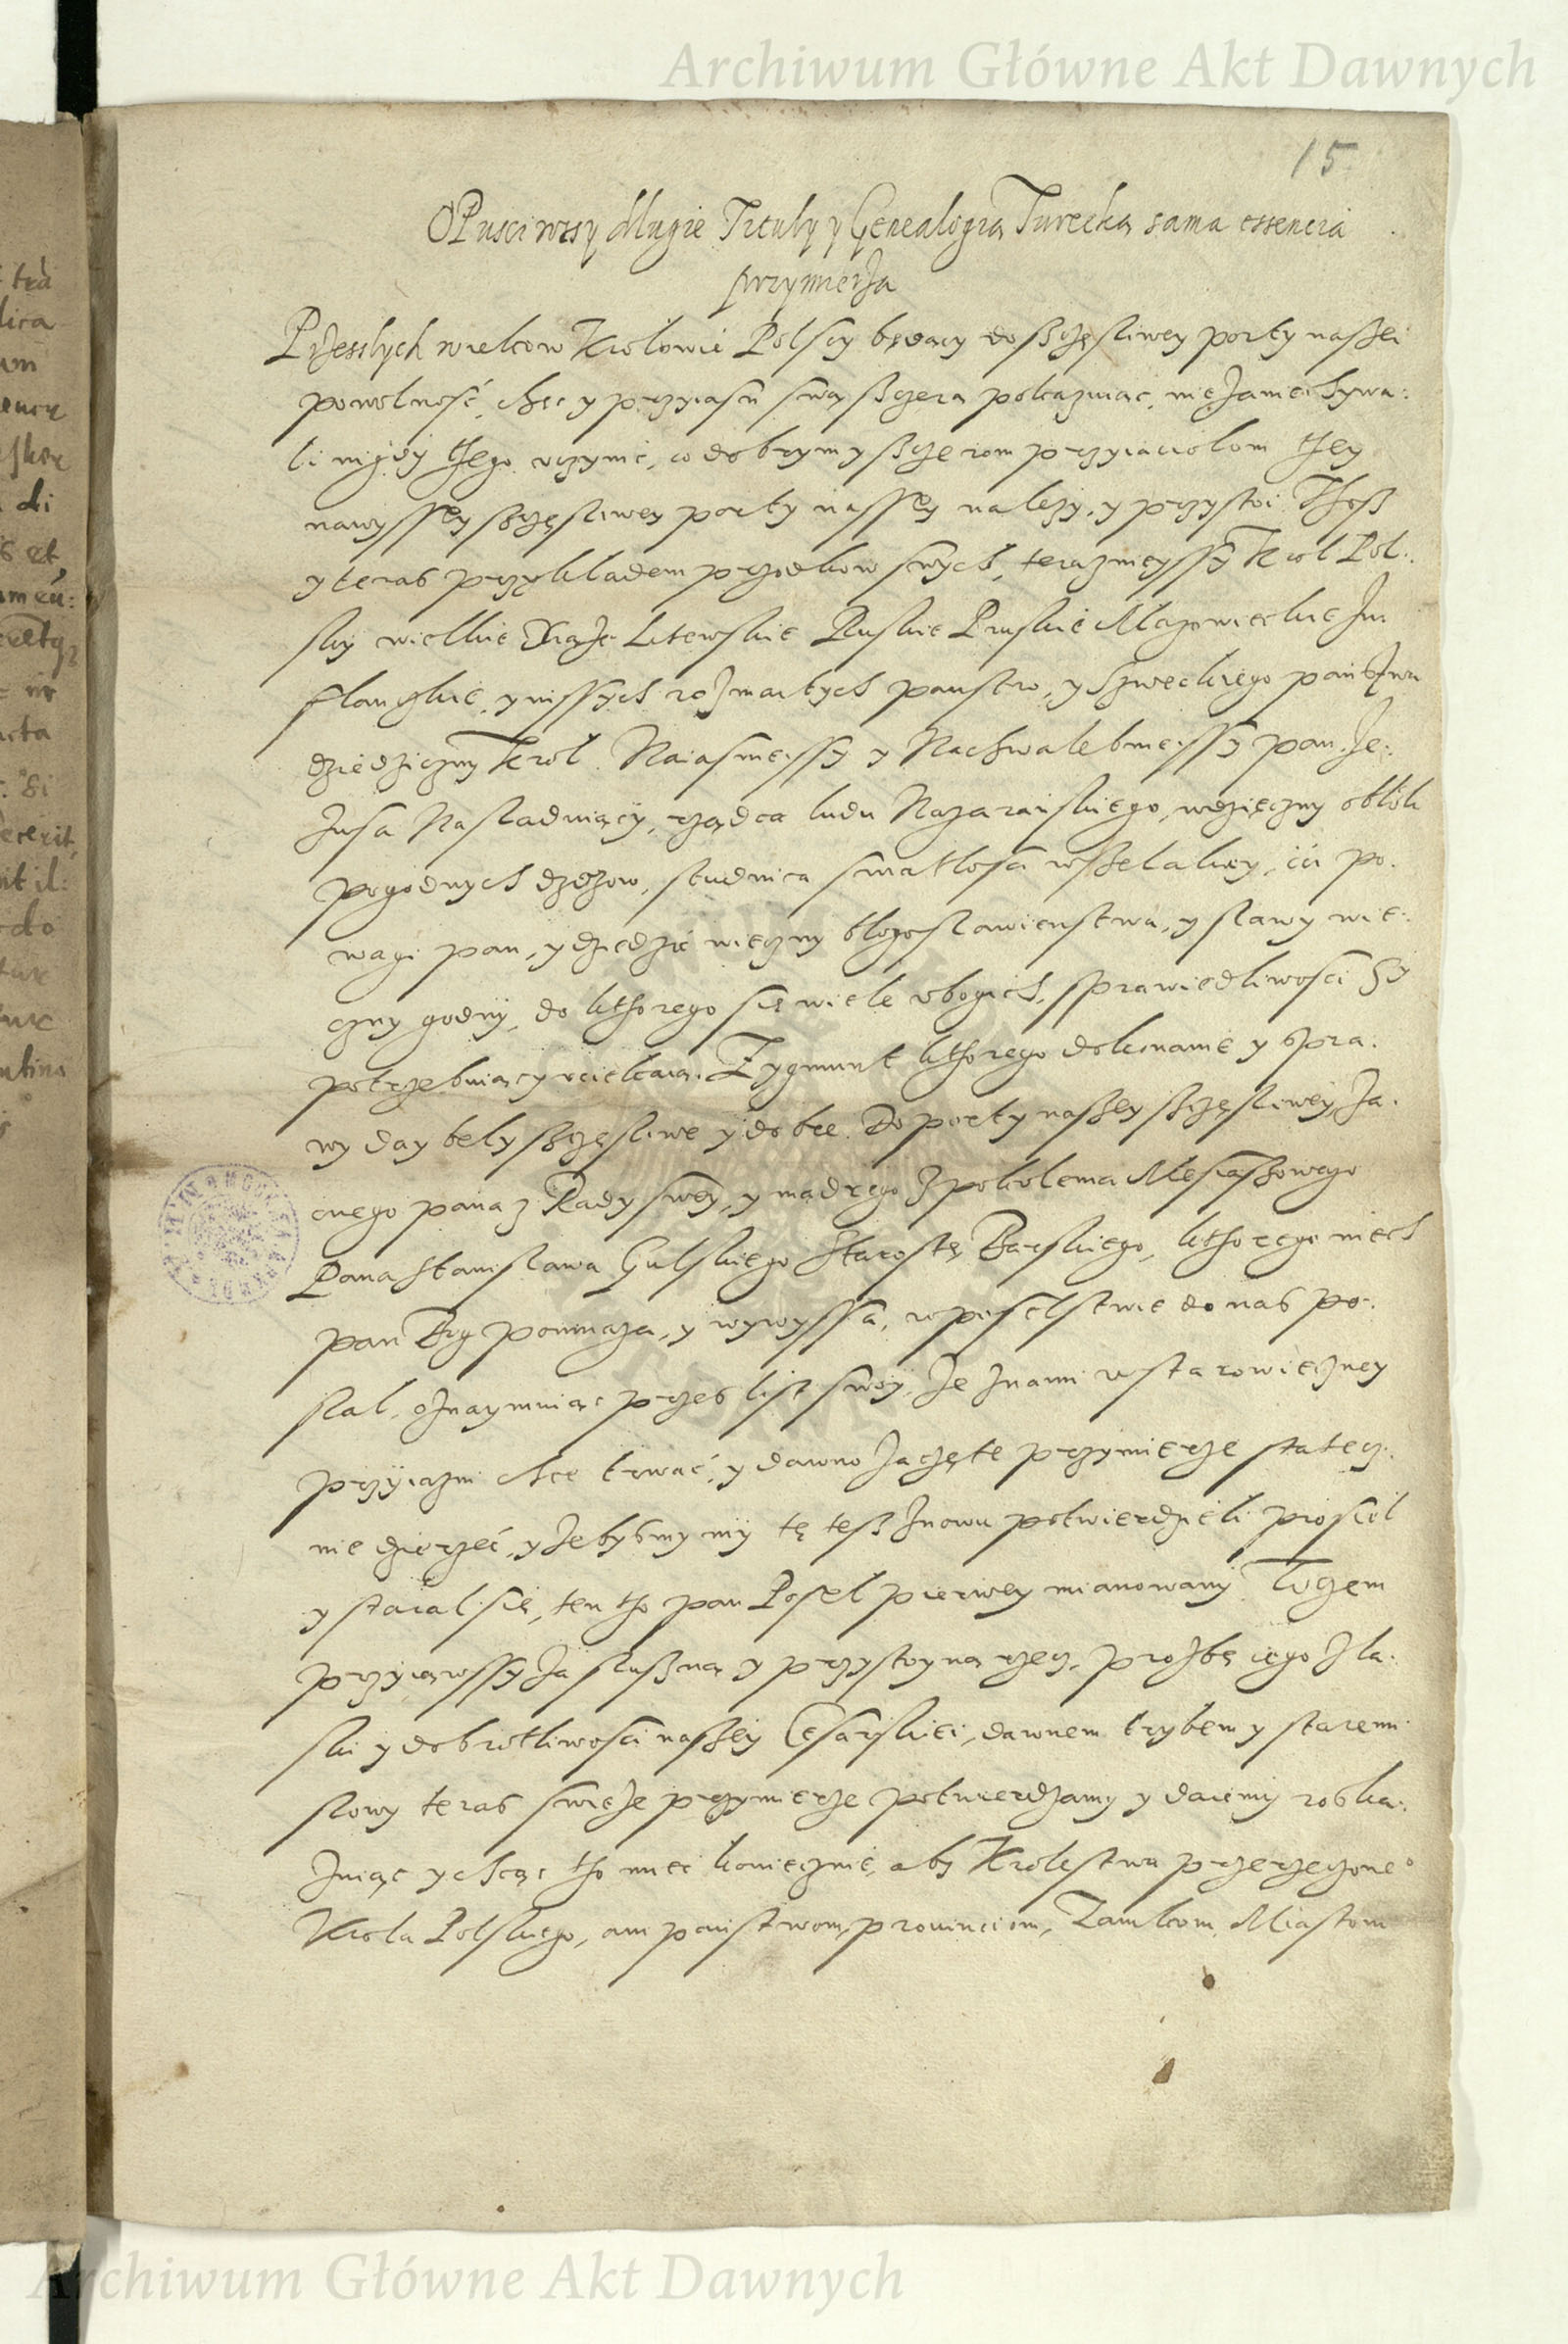 Archiwum Główne Akt Dawnych
15
OPusciwssy dlugie Tituly y Genealogią Turecką sama essencia
przymierza
Przesslych wiekow Krolowie Polscy będący do sczęsliwey porty naszei
powolnosć, chęc y przyiasn swą sczerą pokazuiac, nie zaniechywa:
li nigdy thego uczynic, co dobrym y sczerom przyiaciolom they
nawyssey sczęsliwey porty nassey nalezy, y przystoi Thesz
y teras przykladem przodkow swych, teraznieyssy Krol Pol:
sky wielkie Xięże Litewskie Ruskie Pruskie Mazowieckie In:
flantskie, y inssych rozmaitych panstw, y Szweckiego panstwa
dziedziczny Krol. Naiasnieissy y Nachwalebnieissy pan Je:
zusa Nasladuiący, rządca ludu Nazaranskiego, wdzięczny oblok
pogodnych dzdzow, studnica swiatlosci wszelakiey, ci po:
wagi pan, y dziedzic wieczny blogoslawienstwa, y slawy wie:
czny godny, do kthorego się wiele ubogich, sprawiedliwosci
potrzebuiący uciekaią. Zygmunt kthorego dokonanie y spra:
wy day bely sczęsliwe y dobre. Do porty naszey sczęsliwey za:
cnego pana z Rady swey, y mądrego z pokolenia Mesiaszowego
Pana Stanislawa Gulskiego Starostę Barskiego, kthorego niech
pan Bog pomnaża, y wywyssa, w poselstwie do nas po:
slal, oznaymuiąc przes list swoy, ze z nami w starowieczney
przyiazni chce trwać, y dawno zaczęte przymierze statecz:
nie dzierzeć, y zebysmy my tę tesz znowu potwierdzieli prosiel
y staral się, ten tho pan Posel pierwey mianowany Tuszem
przyiąwssy za sluszną y przystoyną rzecz, prozbę iego z la:
ski y dobrotliwosci naszey Cesarskiei, dawnem trybem y staremi
slowy teras swieże przymierze potwierdzamy y daiemy roska:
zuiąc y chcąc tho miec koniecznie, aby Krolestwu przerzeczone°
Krola Polskiego, ani panstwom, prouinciom, Zamkom, Miastom
Archiwum Główne Akt Dawnych